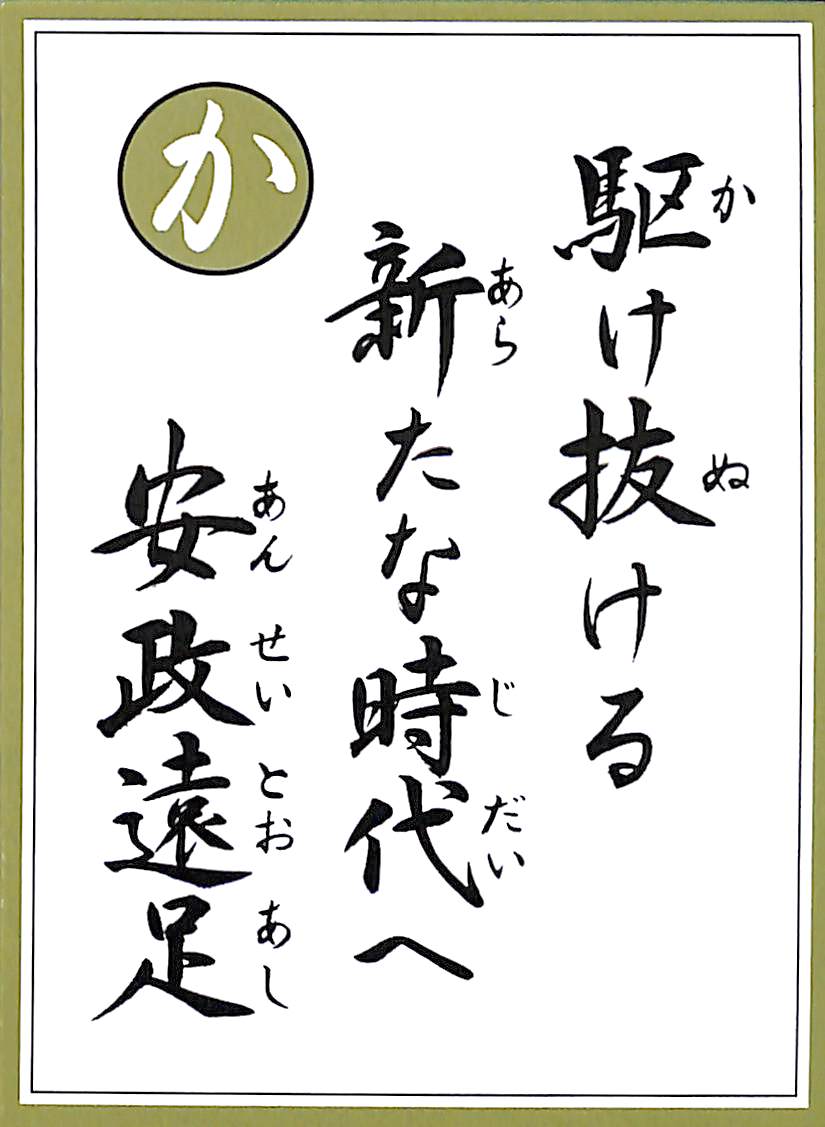 か
駆け抜ける
か ぬ
新たな時代へ
あら じ だい
安政遠足
あん せい とお あし